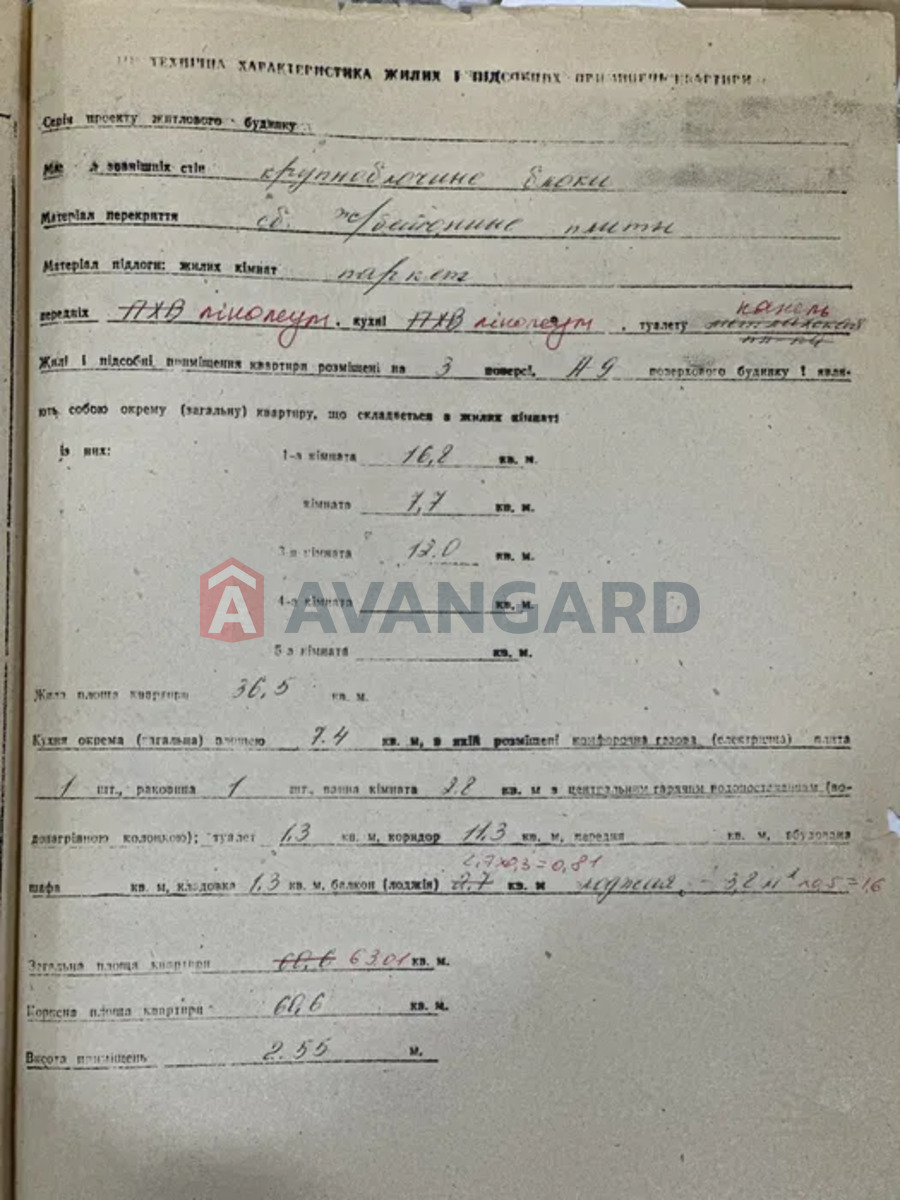 ТЕХНІЧНА ХАРАКТЕРИСТИКА ЖИЛИХ І ПІДСОБНИХ ПРИМІЩЕНЬ КВАРТИРИ
Серія проекту житлового будинку
зовнішніх стін крупноблочние блоки
Матеріал перекриття сб. ж/бетонние плиты
Матеріал підлоги: жилих кімнат паркет
передніх ПХВ лінолеум, кухні ПХВ лінолеум, туалету кахель
Жилі і підсобні приміщення квартири розміщені на 3 поверсі, А-9 поверхового будинку і явля-
ють собою окрему (загальну) квартиру, що складається з жилих кімнат:
із них:
1-а кімната 16,8 кв. м.
кімната 7,7 кв. м.
3-я кімната 12.0 кв. м.
4-а кімната кв. м.
AVANGARD
5-а кімната кв. м.
Жила площа квартири 36,5 кв. м.
Кухня окрема (загальна) площею 7.4 кв. м, в якій розміщені конфорочна газова (електрична) плита
1 шт., раковина 1 шт., ванна кімната 2.2 кв. м з центральним гарячим водопостачанням (во-
донагрівною колонкою); туалет 1,3 кв. м, коридор 11,3 кв. м, передня кв. м, вбудована
2,7х0,3=0,81
шафа кв. м, кладовка 1,3 кв. м, балкон (лоджія) 2,7 кв. м лоджия - 3,2 м² х0,5=1,6
Загальна площа квартири 60,6 63.01 кв. м.
Корисна площа квартири 60,6 кв. м.
Висота приміщень 2.55 м.